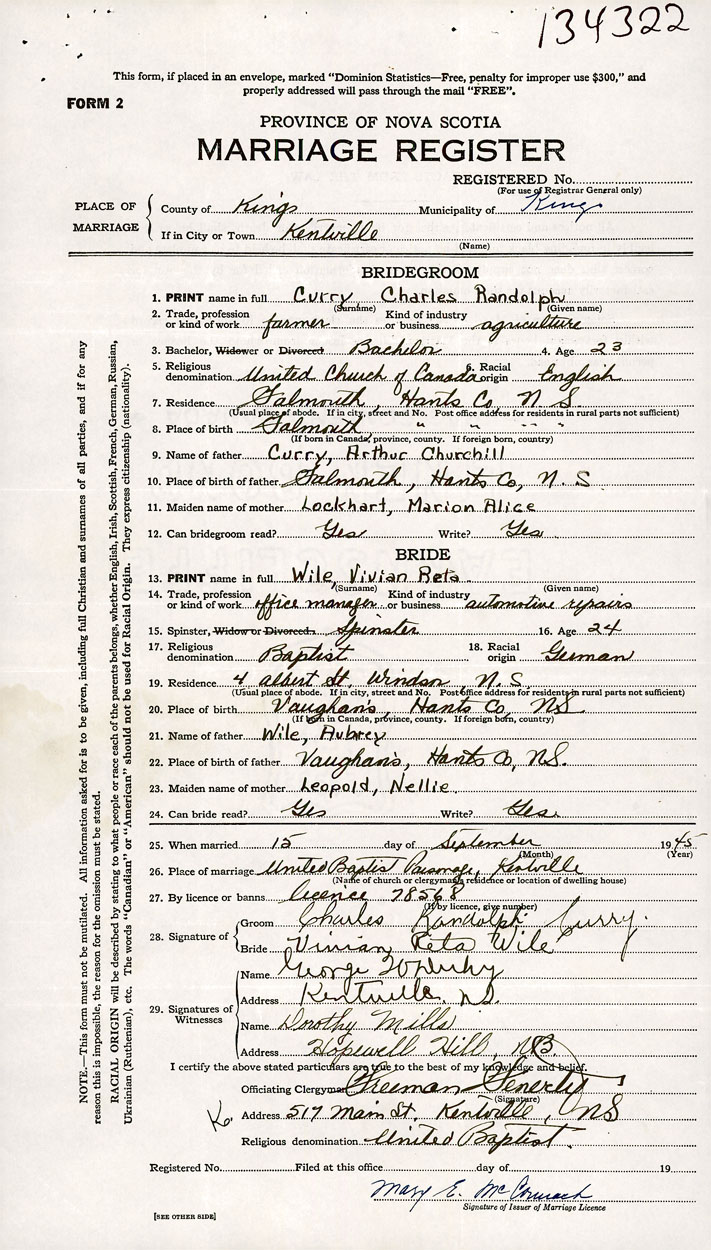 134322
This form, if placed in an envelope, marked "Dominion Statistics—Free, penalty for improper use $300," and
properly addressed will pass through the mail "FREE".
FORM 2
PROVINCE OF NOVA SCOTIA
MARRIAGE REGISTER
REGISTERED No.
(For use of Registrar General only)
PLACE OF MARRIAGE
County of Kings Municipality of Kings
If in City or Town Kentville
(Name)
BRIDEGROOM
1. PRINT name in full Curry, Charles Randolph
(Surname) (Given name)
2. Trade, profession or kind of work farmer Kind of industry or business agriculture
3. Bachelor, Widower or Divorced Bachelor 4. Age 23
5. Religious denomination United Church of Canada 6. Racial origin English
7. Residence Falmouth, Hants Co, N. S.
(Usual place of abode. If in city, street and No. Post office address for residents in rural parts not sufficient)
8. Place of birth Falmouth, " " " "
(If born in Canada, province, county. If foreign born, country)
9. Name of father Curry, Arthur Churchill
10. Place of birth of father Falmouth, Hants Co, N. S
11. Maiden name of mother Lockhart, Marion Alice
12. Can bridegroom read? Yes Write? Yes
BRIDE
13. PRINT name in full Wile, Vivian Reta
(Surname) (Given name)
14. Trade, profession or kind of work office manager Kind of industry or business automotive repairs
15. Spinster, Widow or Divorced Spinster 16. Age 24
17. Religious denomination Baptist 18. Racial origin German
19. Residence 4 Albert St, Windsor, N. S.
(Usual place of abode. If in city, street and No. Post office address for residents in rural parts not sufficient)
20. Place of birth Vaughans, Hants Co, NS.
(If born in Canada, province, county. If foreign born, country)
21. Name of father Wile, Aubrey
22. Place of birth of father Vaughans, Hants Co, NS.
23. Maiden name of mother Leopold, Nellie
24. Can bride read? Yes Write? Yes.
25. When married 15 day of September 1945
(Month) (Year)
26. Place of marriage United Baptist Parsonage, Kentville
(Name of church or clergyman's residence or location of dwelling house)
27. By licence or banns licence 78568
(If by licence, give number)
28. Signature of
Groom Charles Randolph Curry.
Bride Vivian Reta Wile
29. Signatures of Witnesses
Name George
Address Kentville, N.S.
Name Dorothy Mills
Address Hopewell Hill, N.B.
I certify the above stated particulars are true to the best of my knowledge and belief.
Officiating Clergyman Freeman Fenerty
(Signature)
K.
Address 517 Main St, Kentville, NS
Religious denomination United Baptist.
Registered No. Filed at this office day of 19
Mary E. McCormack
Signature of Issuer of Marriage Licence
[SEE OTHER SIDE]
NOTE.—This form must not be mutilated. All information asked for is to be given, including full Christian and surnames of all parties, and if for any
reason this is impossible, the reason for the omission must be stated.
RACIAL ORIGIN will be described by stating to what people or race each of the parents belongs, whether English, Irish, Scottish, French, German, Russian,
Ukrainian (Ruthenian), etc. The words "Canadian" or "American" should not be used for Racial Origin. They express citizenship (nationality).